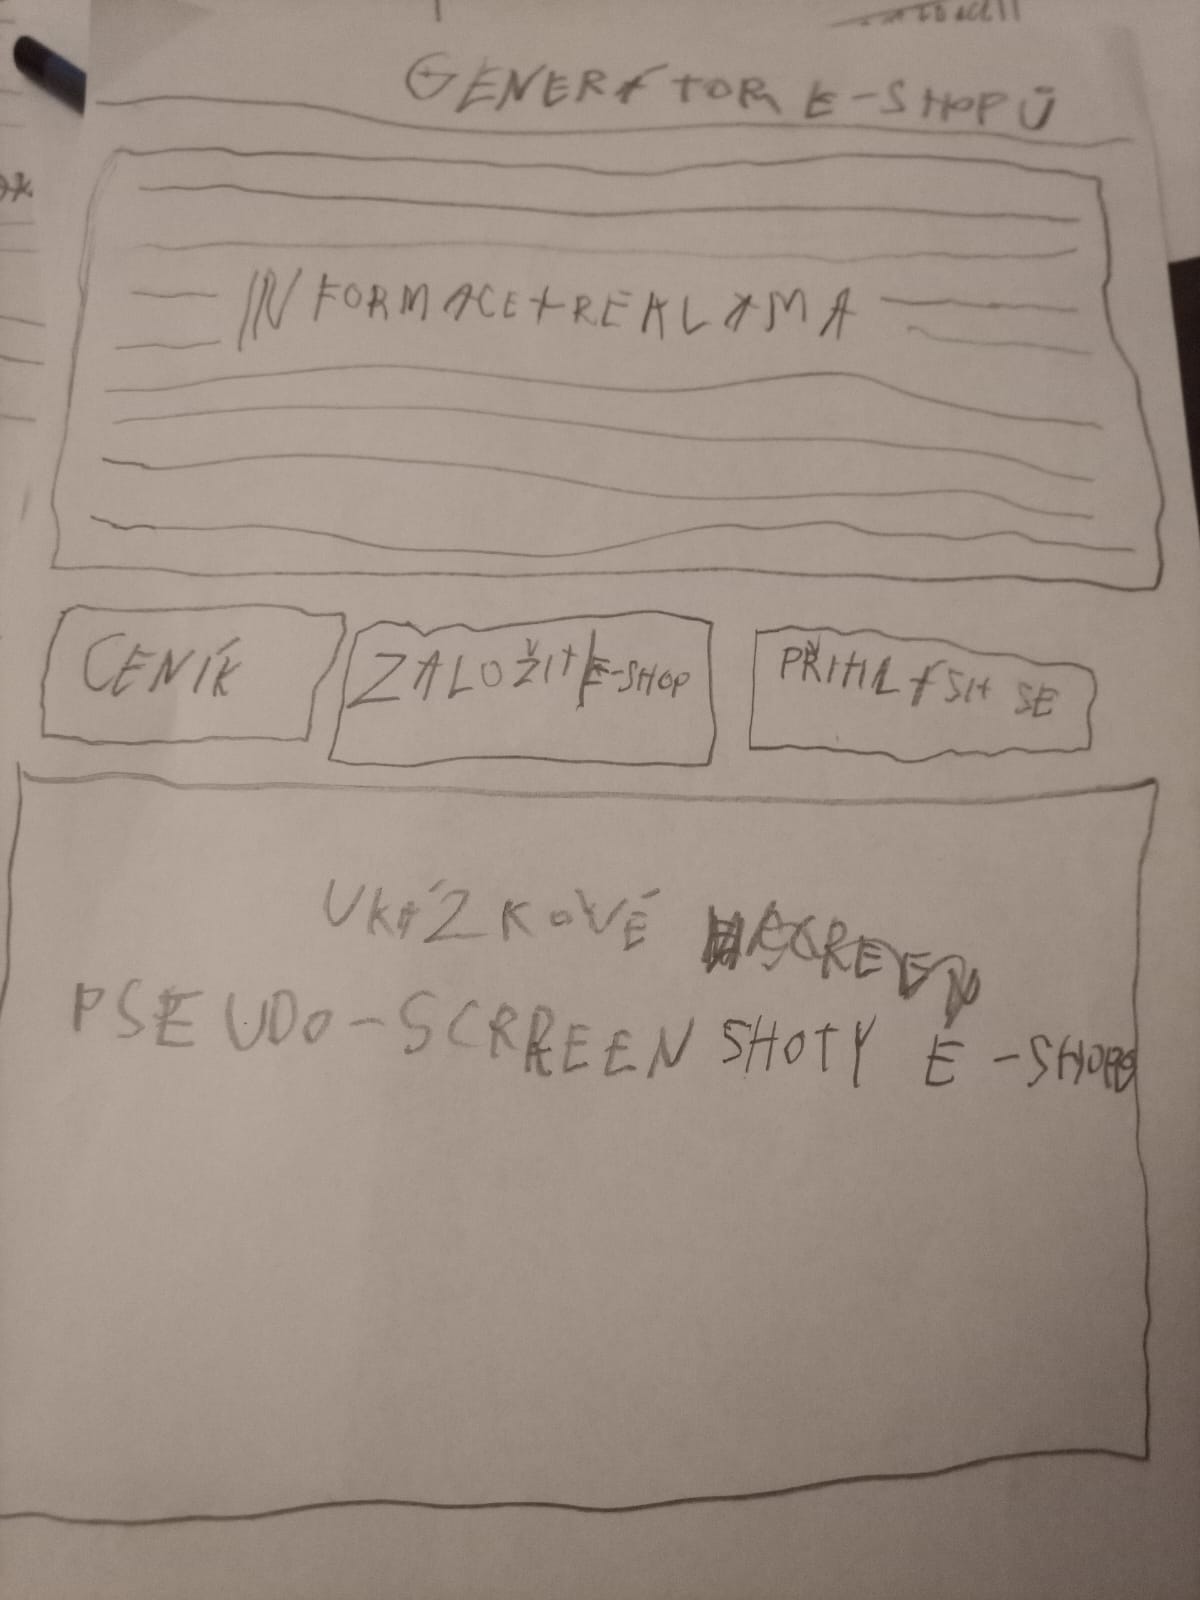 GENERÁTOR E-SHOPŮ
INFORMACE+REKLAMA
CENÍK
ZALOŽIT E-SHOP
PŘIHLÁSIT SE
UKÁZKOVÉ SCREEN
PSEUDO-SCREENSHOTY E-SHOPŮ